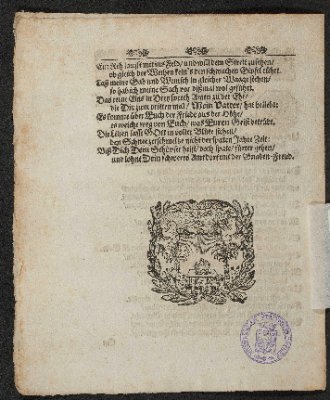 Ein Reh lauffe mit ins Feld / und will dem Streit zusehen /
ob gleich der Weitzen kein's den schwachen Gipfel rühret.
Laß meine Gab und Wunsch in gleicher Waage stehen /
so hab ich meine Sach vor dißmal wol geführt.
Das reine Eins in Drey sprech Amen zu der Eh /
die Dir zum dritten mal / Mein Vatter / hat beliebt
Es komme über Euch der Freude aus der Höhe /
es weiche weg von Euch / was Euren Geist betrübt.
Die Lilien lasse GOtt in voller Blüte stehen /
den Schnee zerschmeltze nicht der spaten Jahre Zeit:
Biß Dich Dein Schöpfer heist / doch spate / fürter gehen /
und lohne Dein schweres Amt der Gnaden-Freud.